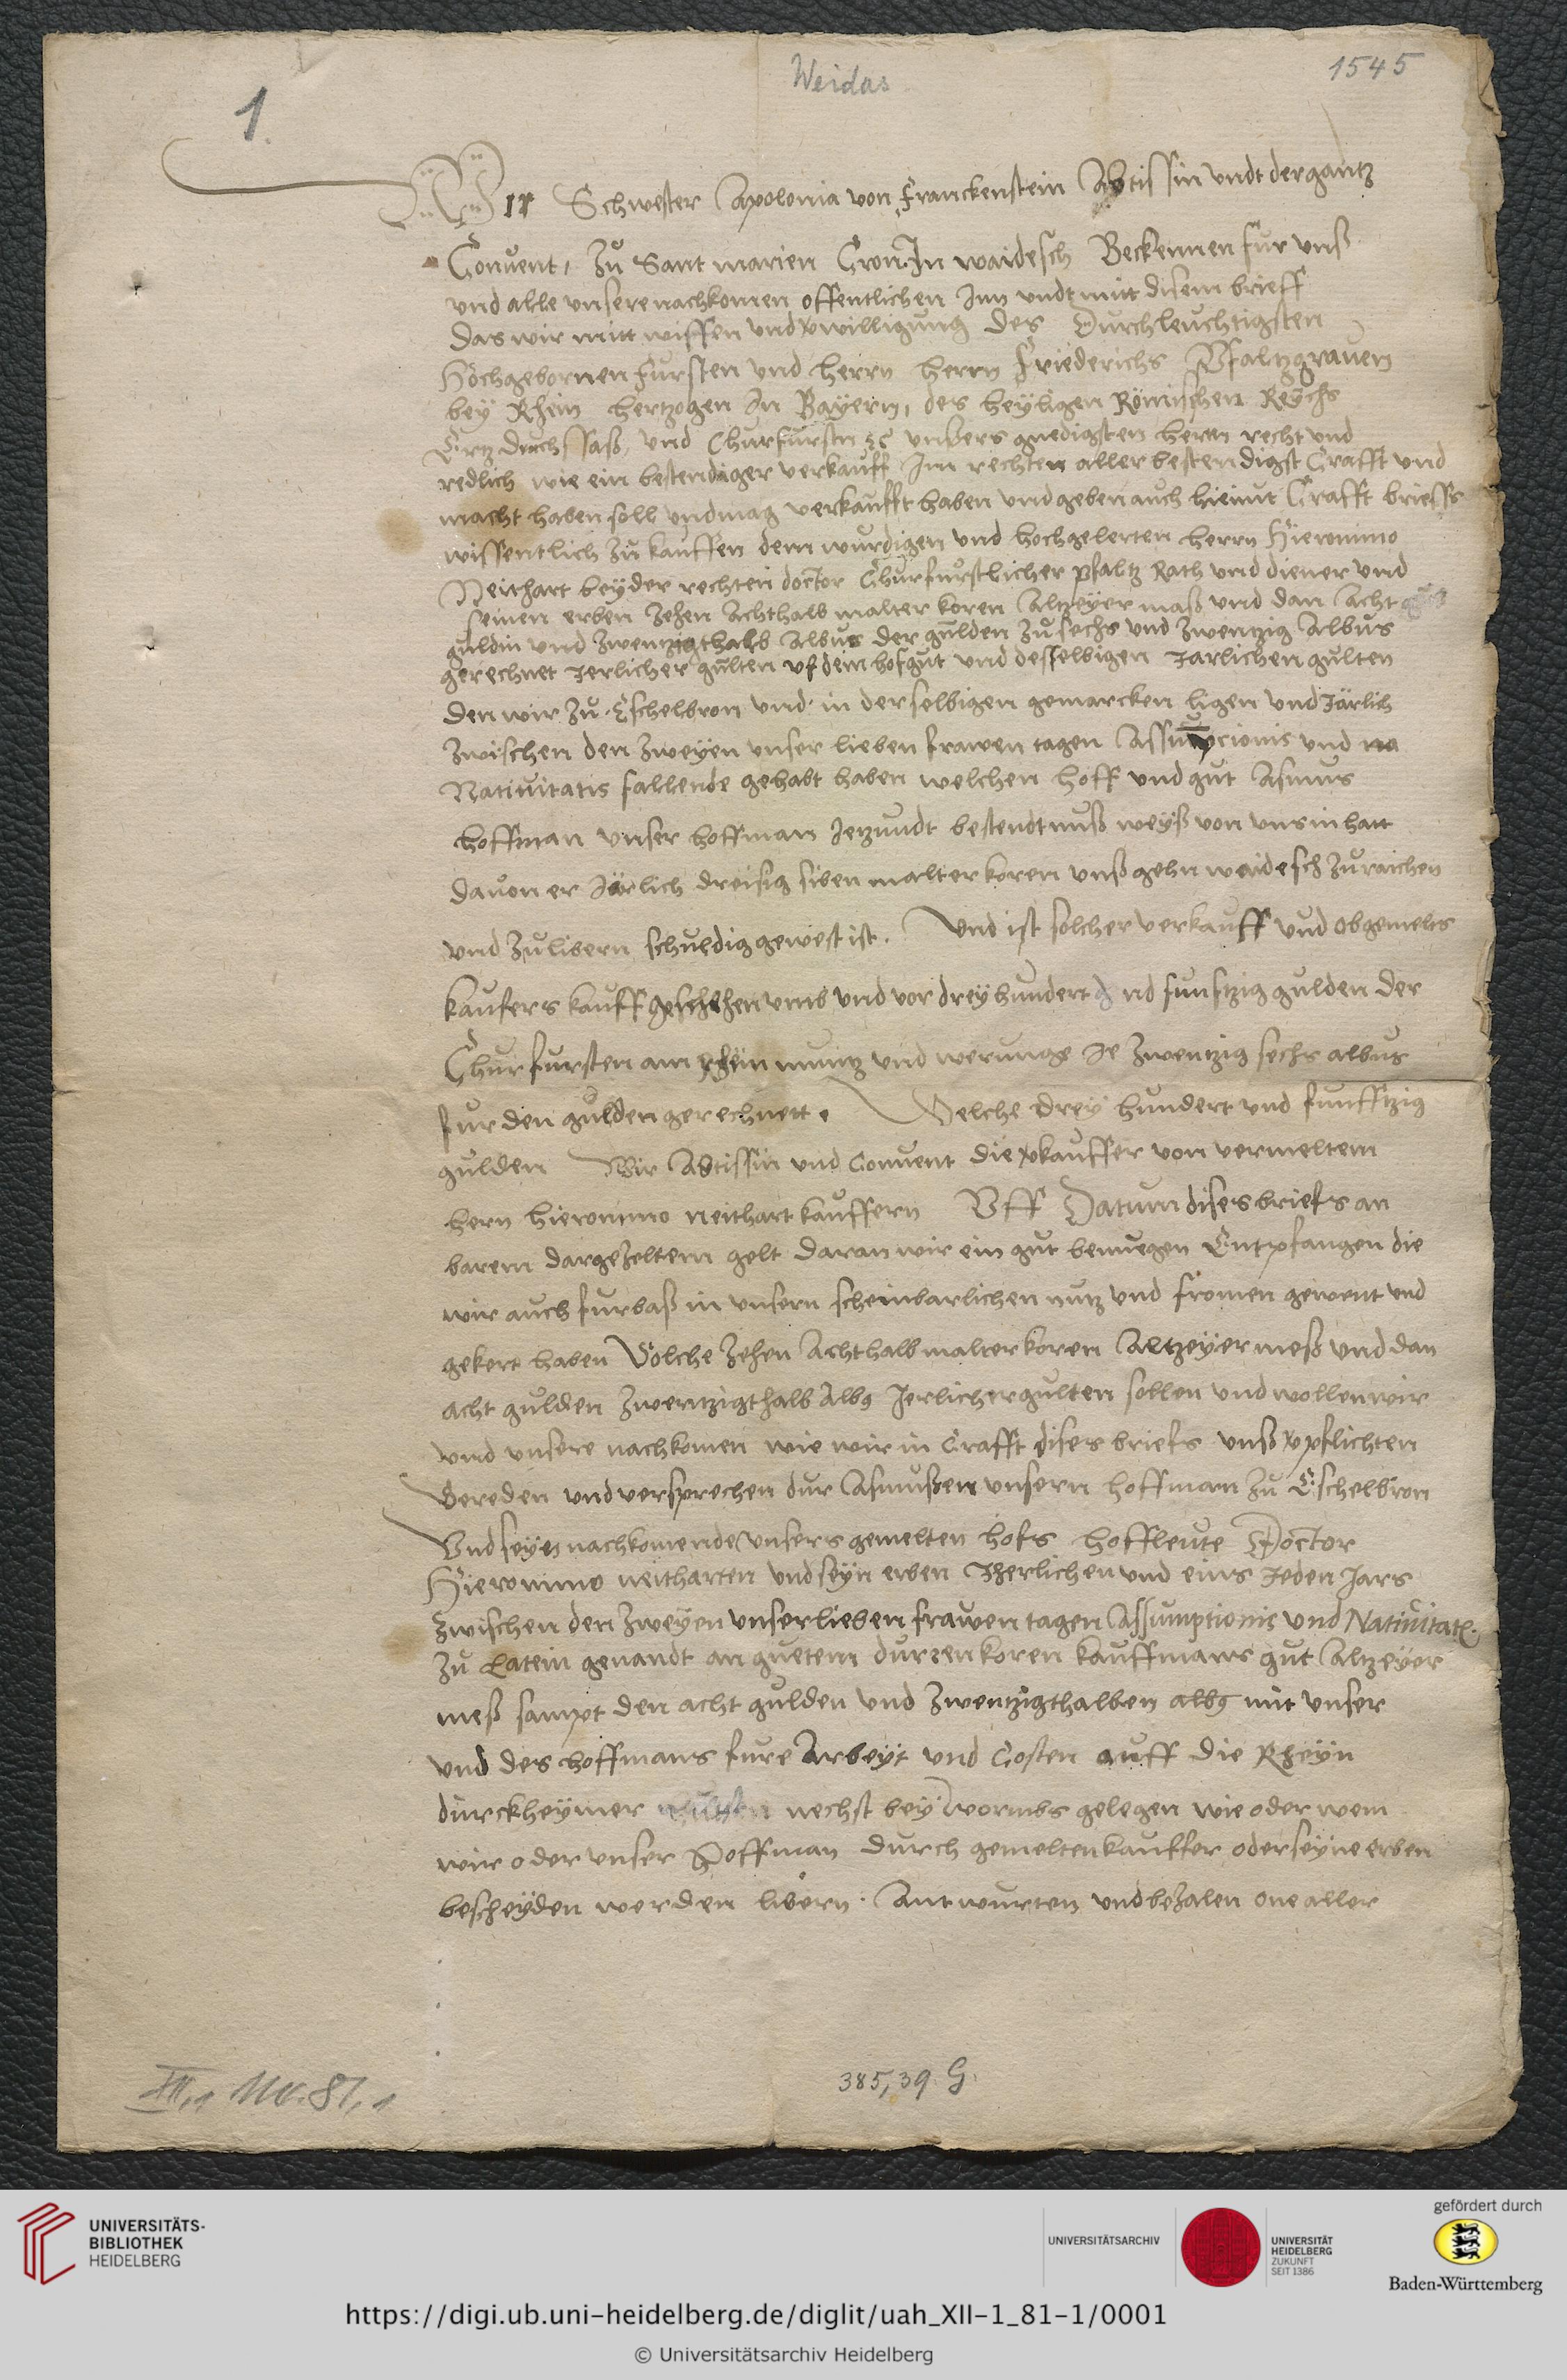 Weidas
1545
1.
Wir Schwester Apolonia von Franckenstein Abtissin undt der gantz
Convent, zu Sant marien Cron In waidesch Beckennen fur unß
und alle unsere nachkomen offentlichen Inn undt mitt disem brieff
das wir mitt wissen und verwilligung des Durchleuchtigsten
Hochgebornen fursten und herrn herrn Friederichs Pfaltzgraven
bey Rhein hertzogen In Bayern, des heyligen Römischen Reychs
Ertzdruchsaß, und Churfursten unsers gnedigsten herrn recht und
redlich wie ein bestendiger verkauff Im rechten aller bestendigst Crafft und
macht haben soll und mag verkaufft haben und geben auch hiemit Crafft brieffs
wissentlich zu kauffen dem wurdigen und hochgelerten herrn Hieronimo
Neithart beyder rechten doctor Churfurstlicher pfaltz Rath und diener und
seinen erben zehen Achthalb malter koren Altzeyer maß und dan Acht
guldin und zwentzigthalb Albus der gulden zu sechs und zwentzig Albus
gerechnet Jerlicher gulten uf dem hofgut und desselbigen Jarlichen gulten
den wir zu Eschelbron und in derselbigen gemarcken ligen und Järlich
zwischen den zweyen unser lieben frawen tagen Assumpcionis und na
Nativitatis fallende gehabt haben welchen hoff und gut Asmus
hoffman unser hoffman Jetzundt bestendtnuß weyß von uns in hatt
davon er Järlich dreisig siben malter koren unß gehn waidesch zu raichen
und zu libern schuldig gewest ist. Und ist solcher verkauff und obgemelts
kaufers kauff geschehen umb und vor drey hundert und funfzig gulden der
Churfursten am rhein muntz und werunge Je zwentzig sechs albus
fur den gulden gerechnett. Welche drey hundert und funfftzig
gulden Wir Abtissin und Convent die verkauffer von vermeltem
hern hieronimo neithart kauffern Uff Datum dises briefs an
barem dargezeltem gelt daran wir ein gut benuegen Entpfangen die
wir auch furbaß in unsern scheinbarlichen nutz und fromen gewent und
gekert haben Solche zehen Achthalb malter koren Altzeyer meß und dan
acht gulden zwentzigthalb Albus Jerlicher gulten sollen und wollen wir
und unsere nachkomen wie wir in Crafft dises briefs unß verpflichten
Bereden und versprechen dur Asmußen unsern hoffman zu Eschelbron
Und seyn nachkomende unsers gemelten hofs hoffleute Doctor
Hieronimo neitharten und seyn erben Jherlichen und eins Jeden Jars
zwischen den zweyen unser lieben frawen tagen Assumptionis und Nativitatis
zu Latein genandt an guetem durren koren kauffmans gut Altzeyer
meß sampt den acht gulden und zwentzigthalben albus mit unser
und des hoffmans fure Arbeyt und Costen auff die Rheyn
durckheymer nechst bey wormbs gelegen wie oder wem
wir oder unser Hoffman durch gemelten kauffer oder seyne erben
bescheyden werden libern Antwurten und bezalen one aller
385,39 G.
XII,1 Nr. 81,1
UNIVERSITÄTS-
BIBLIOTHEK
HEIDELBERG
UNIVERSITÄTSARCHIV
UNIVERSITÄT
HEIDELBERG
ZUKUNFT
SEIT 1386
gefördert durch
Baden-Württemberg
https://digi.ub.uni-heidelberg.de/diglit/uah_XII-1_81-1/0001
© Universitätsarchiv Heidelberg